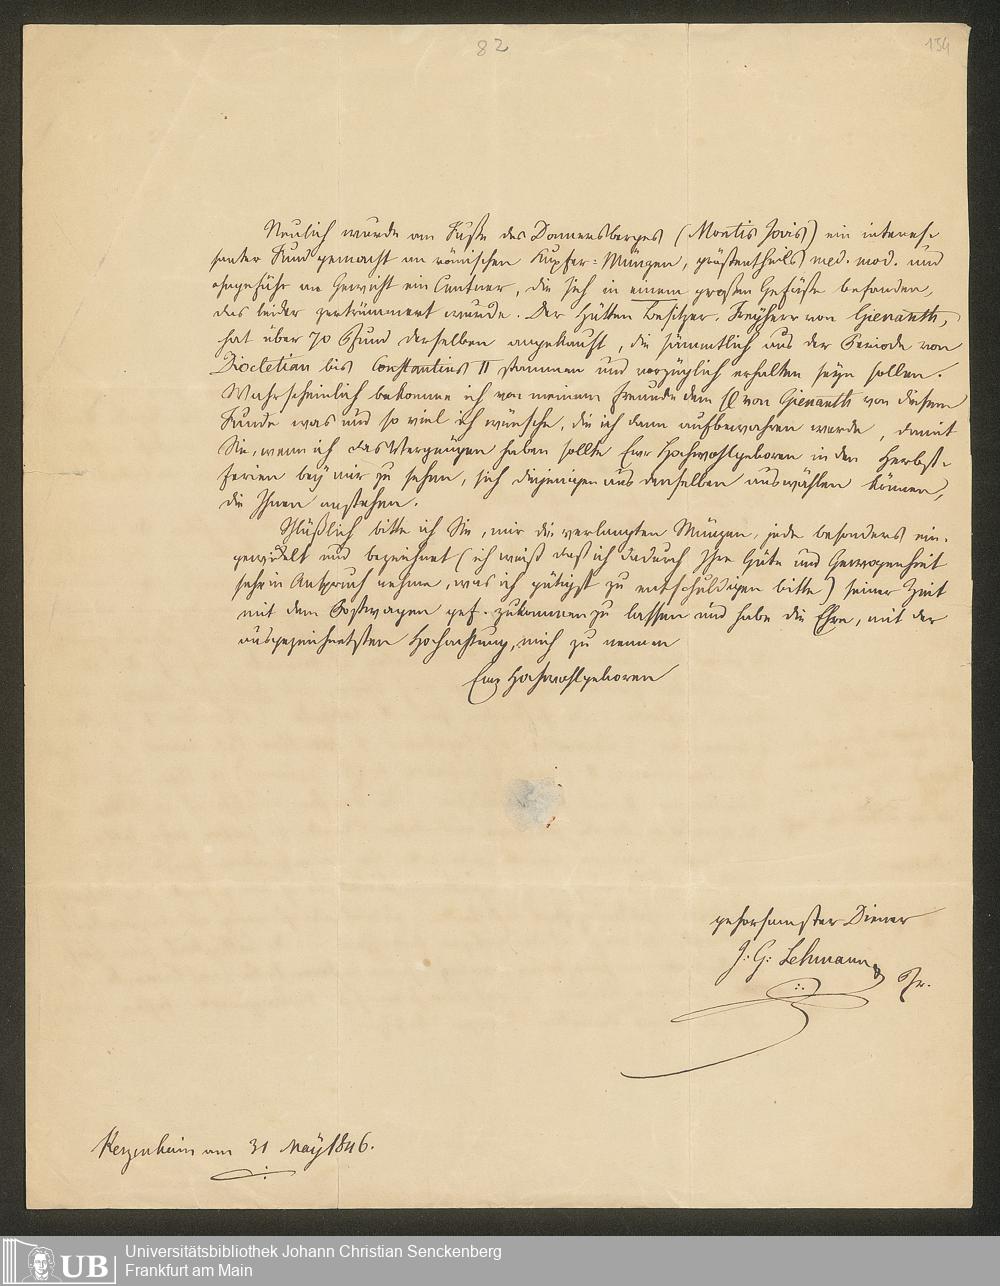 82
154
Neulich wurde am Fuße des Donnersberges (Montis Jovis) ein interes-
santer Fund gemacht an römischen Kupfer-Münzen, gröstentheils med. mod. und
ohngefähr am Gewicht ein Centner, die sich in einem großen Gefäße befanden,
das leider zertrümmert wurde. Der Hütten Besitzer, Freyherr von Gienanth,
hat über 70 Pfund derselben angekauft, die sämmtlich aus der Periode von
Diocletian bis Constantius II stammen und vorzüglich erhalten seyn sollen.
Wahrscheinlich bekomme ich von meinem Freunde dem H von Gienanth von diesem
Funde was und so viel ich wünsche, die ich dann aufbewahren werde, damit
Sie, wenn ich das Vergnügen haben sollte Euer Hochwohlgeboren in den Herbst-
ferien bey mir zu sehen, sich diejenigen aus denselben auswählen können,
die Ihnen anstehen.
Schlüßlich bitte ich Sie, mir die verlangten Münzen, jede besonders ein-
gewickelt und bezeichnet (ich weiß daß ich dadurch Ihre Güte und Gewogenheit
sehr in Anspruch nehme, was ich gütigst zu entschuldigen bitte) seiner Zeit
mit dem Postwagen gef. zukommen zu lassen und habe die Ehre, mit der
ausgezeichnetsten Hochachtung, mich zu nennen
Euer Hochwohlgeboren
gehorsamster Diener
J. G. Lehmann
Pfr.
Kerzenheim am 31 May 1846.
UB
Universitätsbibliothek Johann Christian Senckenberg
Frankfurt am Main